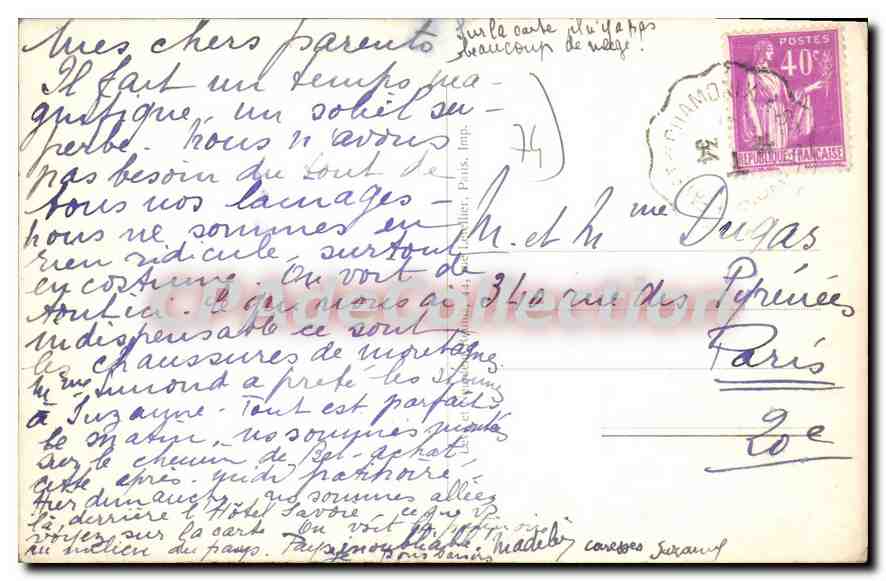 Mes chers parents
Sur la carte il n'y a pas
beaucoup de neige.
Il fait un temps ma-
gnifique, un soleil su-
perbe. Nous n'avons
pas besoin du tout de
tous nos lainages -
nous ne sommes en
rien ridicule, surtout
en costume. On voit de
tout ici. Ce qui nous a
indispensable ce sont
les chaussures de montagne
Mme a prêté les siennes
à Suzanne - Tout est parfait
Le matin, ns sommes montés
sur le chemin de
cette après-midi patinoire,
Hier dimanche, ns sommes allées
là derrière l'Hôtel Savoie, ce que vs
voyez sur la carte. On voit
au milieu du pays. Pays inoubliable.
Madeleine
caresses Suzanne
74
POSTES
40c
REPUBLIQUE FRANÇAISE
CHAMONIX
34
M. et Mme Dugas
340 rue des Pyrénées
Paris
20e
Paris, Imp.
CPA de Collection